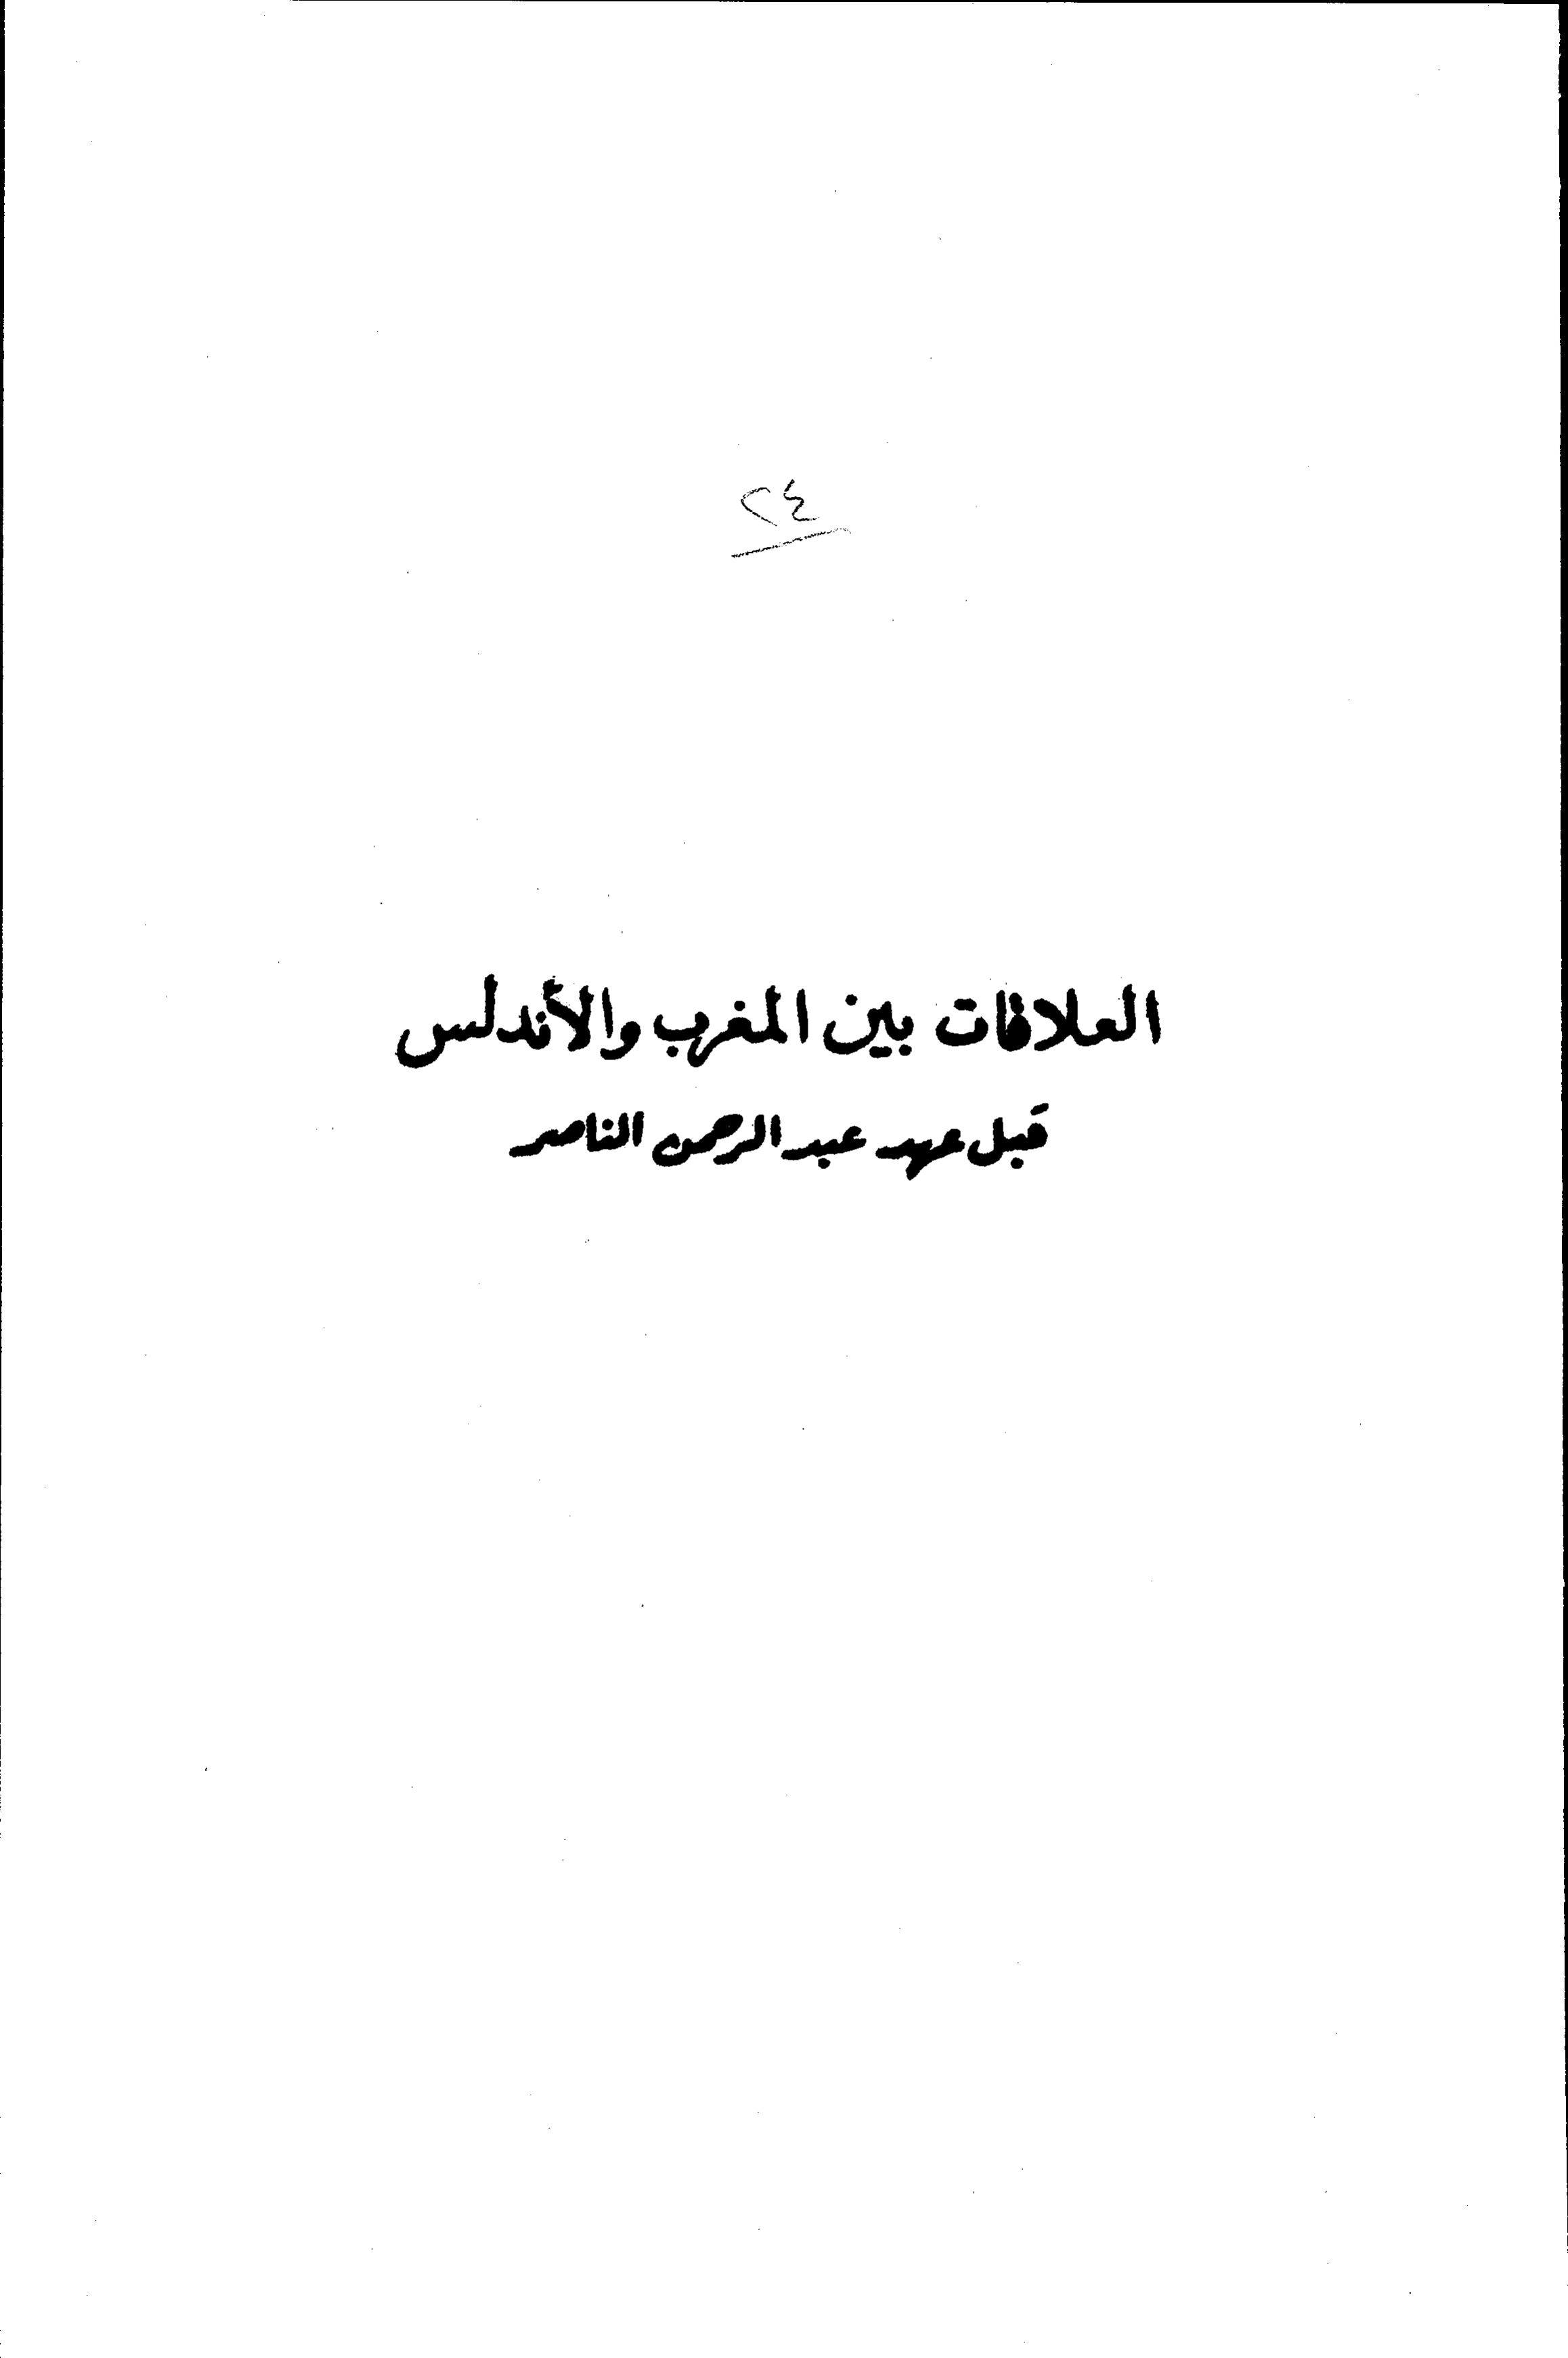 ٢٤
العلاقات بين المغرب والأندلس
قبل عهد عبد الرحمن الناصر